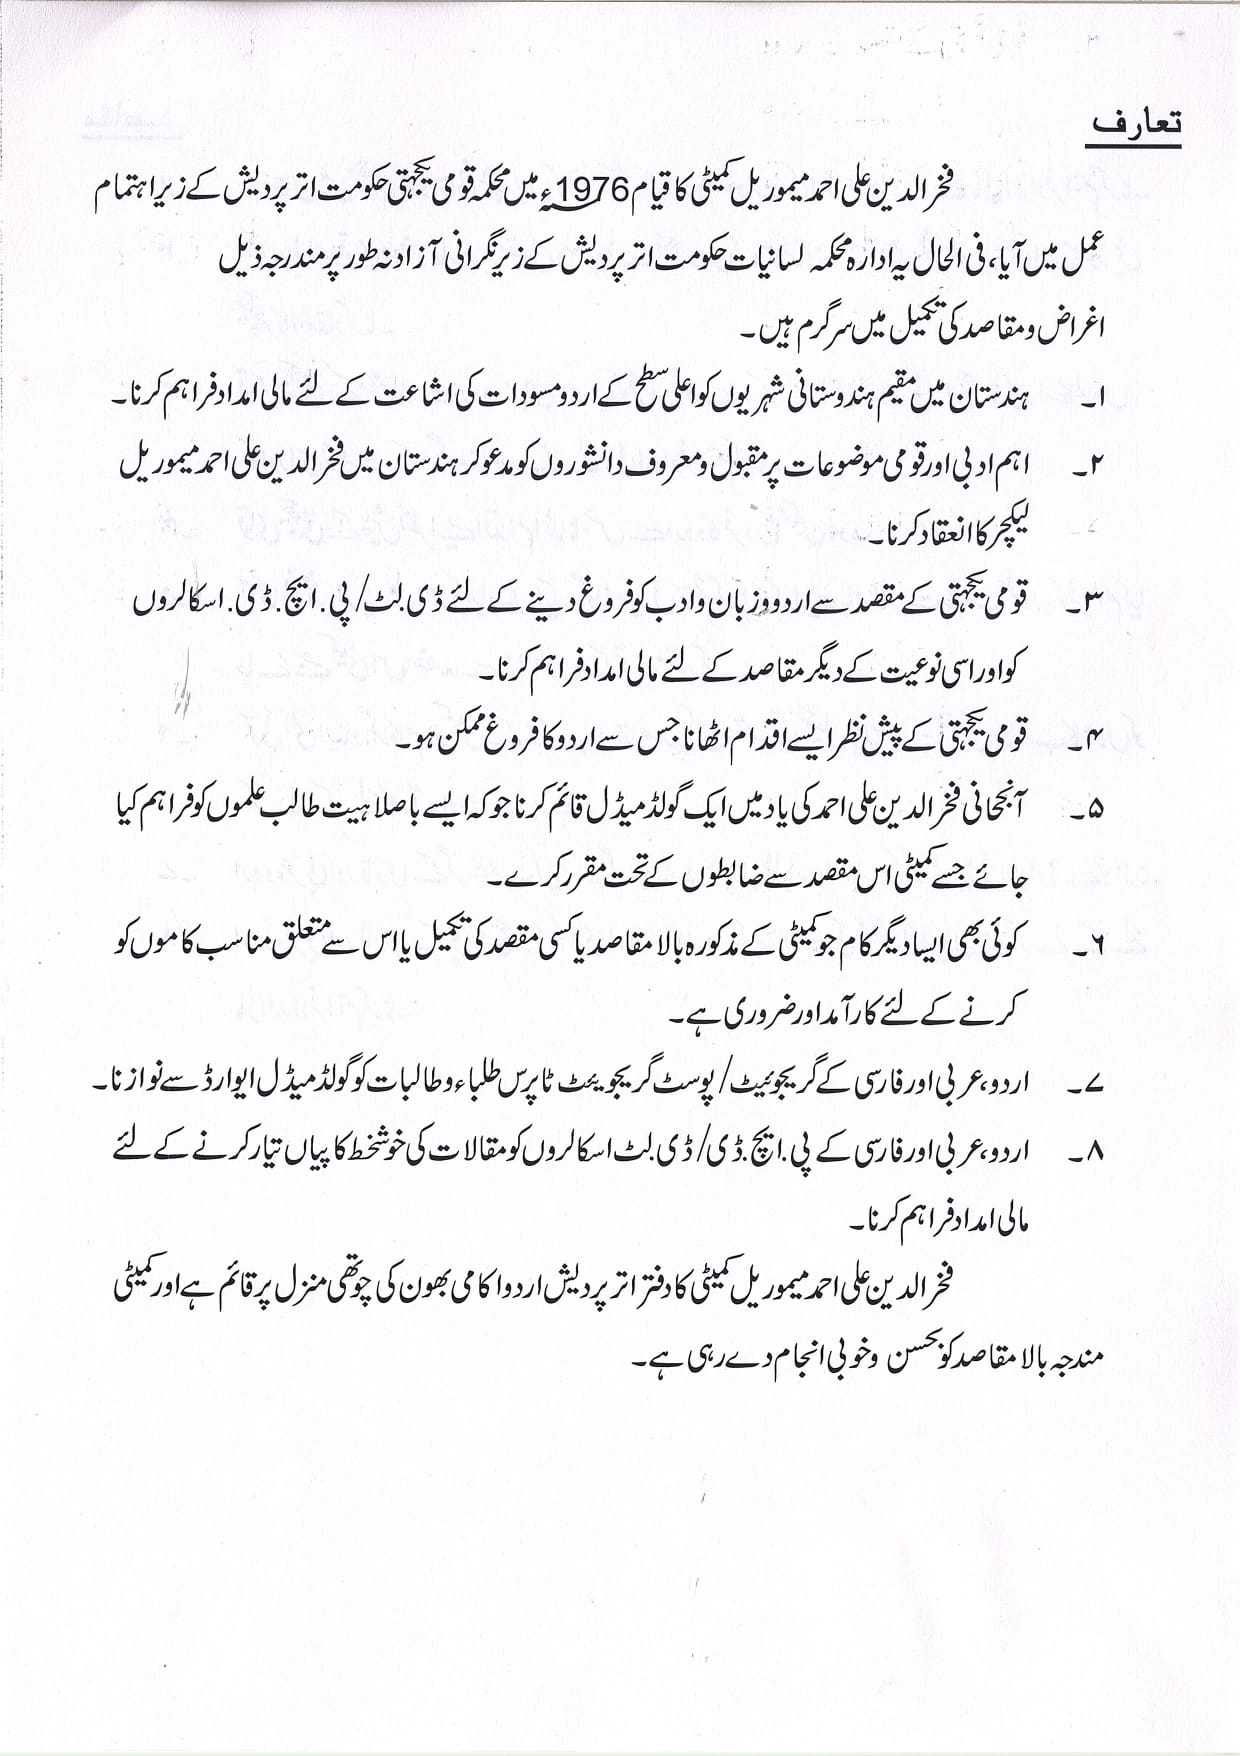 تعارف
فخر الدین علی احمد میموریل کمیٹی کا قیام 1976ء میں محکمہ قومی یکجہتی حکومت اتر پردیش کے زیر اہتمام
عمل میں آیا، فی الحال یہ ادارہ محکمہ لسانیات حکومت اتر پردیش کے زیر نگرانی آزادنہ طور پر مندرجہ ذیل
اغراض و مقاصد کی تکمیل میں سرگرم ہیں۔
۱۔ ہندستان میں مقیم ہندوستانی شہریوں کو اعلی سطح کے اردو مسودات کی اشاعت کے لئے مالی امداد فراہم کرنا۔
۲۔ اہم ادبی اور قومی موضوعات پر مقبول و معروف دانشوروں کو مدعو کر ہندستان میں فخر الدین علی احمد میموریل
لیکچر کا انعقاد کرنا۔
۳۔ قومی یکجہتی کے مقصد سے اردو و زبان و ادب کو فروغ دینے کے لئے ڈی.لٹ/ پی. ایچ. ڈی. اسکالروں
کو اور اسی نوعیت کے دیگر مقاصد کے لئے مالی امداد فراہم کرنا۔
۴۔ قومی یکجہتی کے پیش نظر ایسے اقدام اٹھانا جس سے اردو کا فروغ ممکن ہو۔
۵۔ آنجحانی فخر الدین علی احمد کی یاد میں ایک گولڈ میڈل قائم کرنا جو کہ ایسے باصلاہیت طالب علموں کو فراہم کیا
جائے جسے کمیٹی اس مقصد سے ضابطوں کے تحت مقرر کرے۔
۶۔ کوئی بھی ایسا دیگر کام جو کمیٹی کے مذکورہ بالا مقاصد یا کسی مقصد کی تکمیل یا اس سے متعلق مناسب کاموں کو
کرنے کے لئے کارآمد اور ضروری ہے۔
۷۔ اردو، عربی اور فارسی کے گریجوئیٹ/ پوسٹ گریجویئٹ ٹاپرس طلباء و طالبات کو گولڈ میڈل ایوارڈ سے نوازنا۔
۸۔ اردو، عربی اور فارسی کے پی.ایچ.ڈی/ ڈی.لٹ اسکالروں کو مقالات کی خوشخط کاپیاں تیار کرنے کے لئے
مالی امداد فراہم کرنا۔
فخر الدین علی احمد میموریل کمیٹی کا دفتر اتر پردیش اردو اکامی بھون کی چوتھی منزل پر قائم ہے اور کمیٹی
مندجہ بالا مقاصد کو بحسن و خوبی انجام دے رہی ہے۔